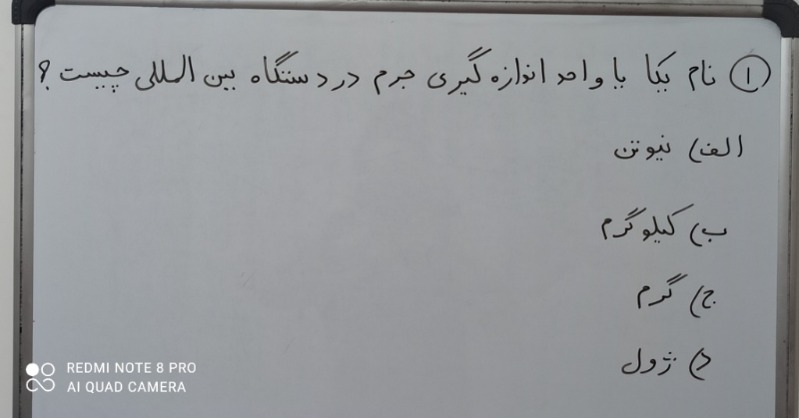 ۱ نام یکا یا واحد اندازه گیری جرم در دستگاه بین المللی چیست ؟
الف) نیوتن
ب) کیلوگرم
ج) گرم
د) ژول
REDMI NOTE 8 PRO
AI QUAD CAMERA